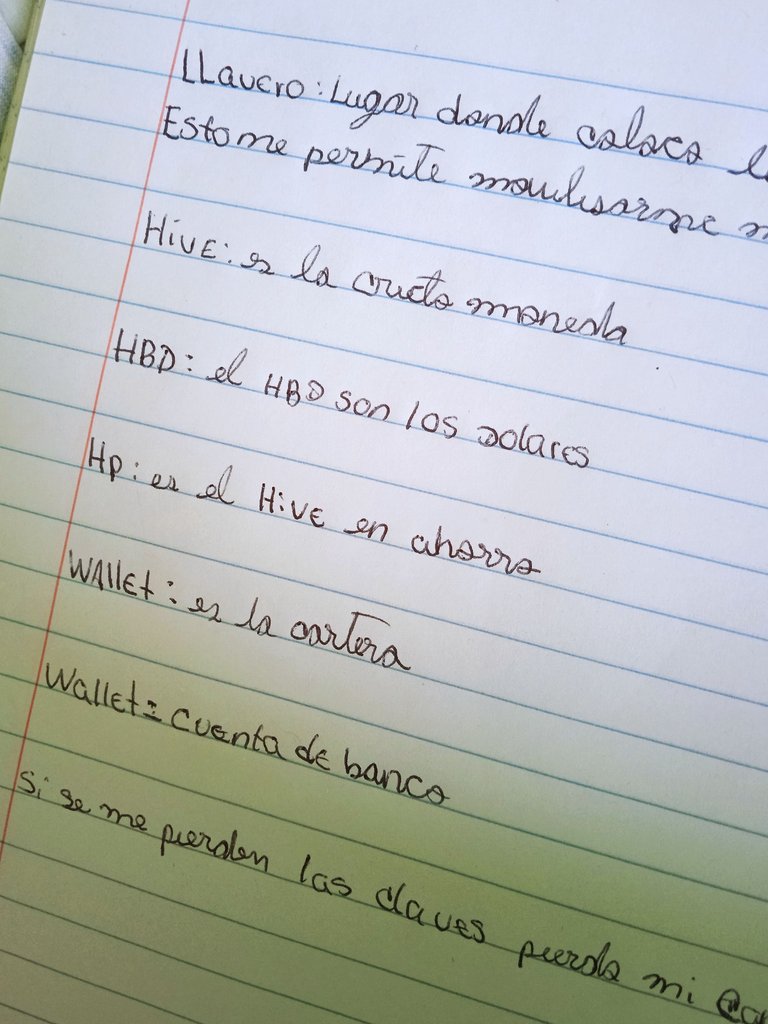 LLavero: Lugar donde coloco
Esto me permite
HivE: es la cripto moneda
HBD: el HBD son los dolares
Hp: es el HivE en ahorro
WAllEt: es la cartera
Wallet = cuenta de banco
Si se me pierden las claves pierdo mi